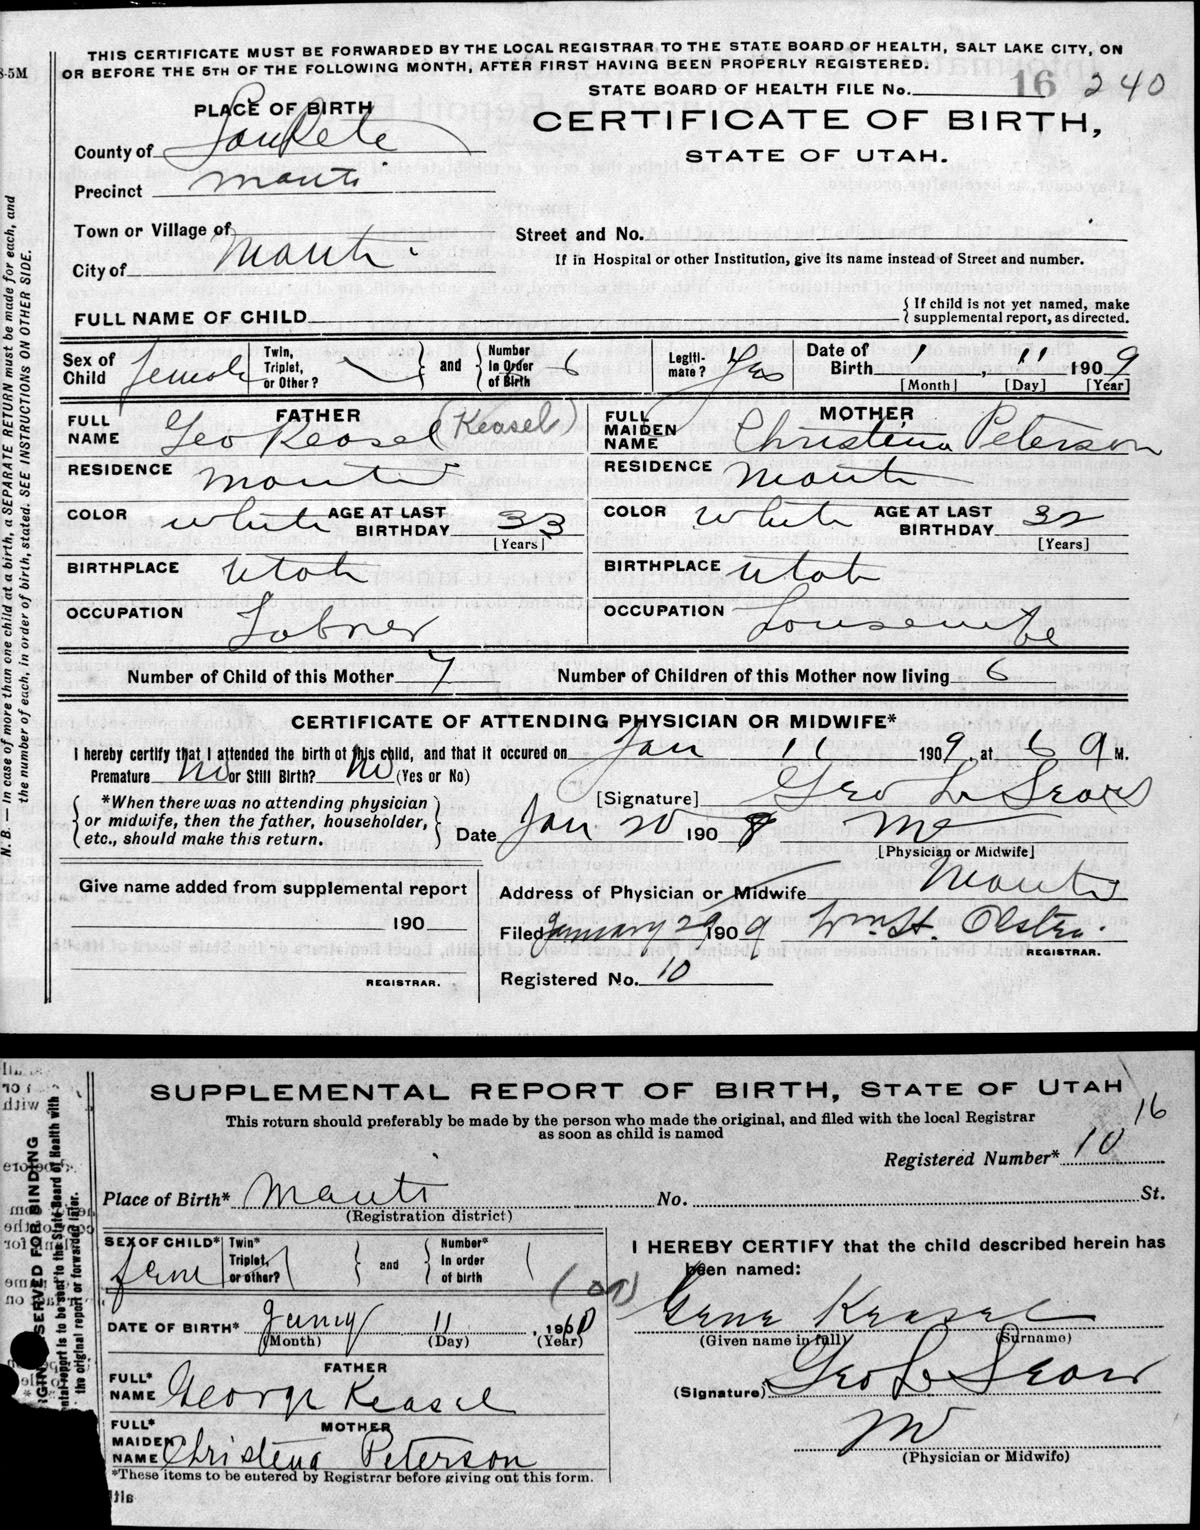 THIS CERTIFICATE MUST BE FORWARDED BY THE LOCAL REGISTRAR TO THE STATE BOARD OF HEALTH, SALT LAKE CITY, ON
OR BEFORE THE 5TH OF THE FOLLOWING MONTH, AFTER FIRST HAVING BEEN PROPERLY REGISTERED.
STATE BOARD OF HEALTH FILE No. 16 240
PLACE OF BIRTH
CERTIFICATE OF BIRTH,
STATE OF UTAH.
County of SanPete
Precinct Manti
Town or Village of
City of Manti
Street and No.
If in Hospital or other Institution, give its name instead of Street and number.
FULL NAME OF CHILD
{ If child is not yet named, make supplemental report, as directed.
Sex of Child female Twin, Triplet, or Other? } and { Number in Order of Birth 6 Legitimate? Yes Date of Birth 1, 11 1909
[Month] [Day] [Year]
FATHER
FULL NAME Geo Keasel (Keasel)
RESIDENCE Manti
COLOR white AGE AT LAST BIRTHDAY 33
[Years]
BIRTHPLACE Utah
OCCUPATION Labner
MOTHER
FULL MAIDEN NAME Christina Peterson
RESIDENCE Manti
COLOR white AGE AT LAST BIRTHDAY 32
[Years]
BIRTHPLACE Utah
OCCUPATION Housewife
Number of Child of this Mother 7 Number of Children of this Mother now living 6
CERTIFICATE OF ATTENDING PHYSICIAN OR MIDWIFE*
I hereby certify that I attended the birth of this child, and that it occured on Jan 11 1909, at 6 a M.
Premature No or Still Birth? No (Yes or No)
{ *When there was no attending physician or midwife, then the father, householder, etc., should make this return. }
[Signature] Geo L Sears
Date Jan 20 1909 MD
[Physician or Midwife]
Give name added from supplemental report
190
REGISTRAR.
Address of Physician or Midwife Manti
Filed January 29 1909 Wm H. Olsten.
REGISTRAR.
Registered No. 10
N. B. — In case of more than one child at a birth, a SEPARATE RETURN must be made for each, and
the number of each, in order of birth, stated. SEE INSTRUCTIONS ON OTHER SIDE.
SUPPLEMENTAL REPORT OF BIRTH, STATE OF UTAH
This return should preferably be made by the person who made the original, and filed with the local Registrar
as soon as child is named
16
Registered Number* 10
Place of Birth* Manti No. St.
(Registration district)
SEX OF CHILD* Fem Twin* Triplet, or other? } and { Number* in order of birth 1
DATE OF BIRTH* Jany 11, 190
(Month) (Day) (Year)
(09)
FATHER
FULL* NAME George Keasel
MOTHER
FULL* MAIDEN* NAME Christena Peterson
*These items to be entered by Registrar before giving out this form.
I HEREBY CERTIFY that the child described herein has
been named:
Gene Keasel
(Given name in full) (Surname)
(Signature) Geo L Sears
MD
(Physician or Midwife)